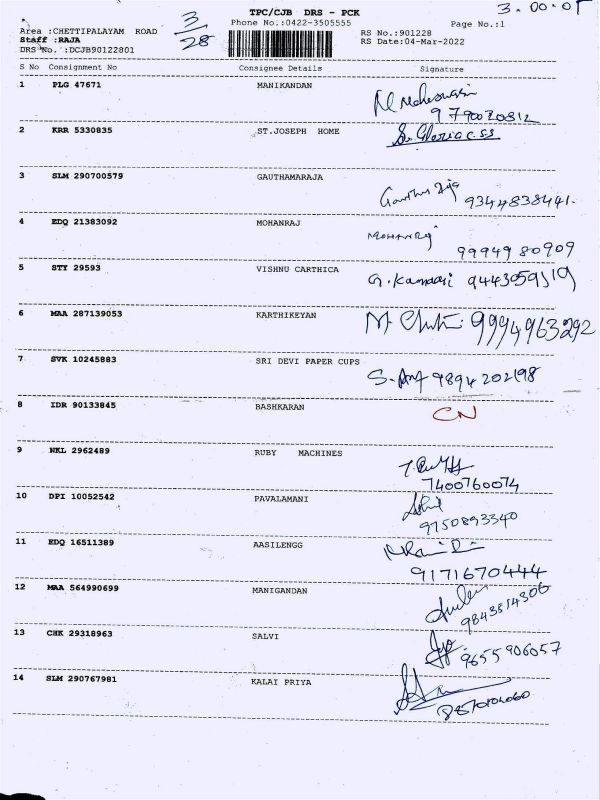 TPC/CJB DRS - PCK
3.00.01
Phone No.:0422-3505555
Page No.:1
Area :CHETTIPALAYAM ROAD
3/28
RS No.:901228
Staff :RAJA
RS Date:04-Mar-2022
DRS No. :DCJB90122801
S No Consignment No Consignee Details Signature
1 PLG 47671 MANIKANDAN
N Maheswari
9790020812
2 KRR 5330835 ST.JOSEPH HOME
Sr. Gloria C.S.S
3 SLM 290700579 GAUTHAMARAJA
9344838441.
4 EDQ 21383092 MOHANRAJ
MOHANRAJ
9994980909
5 STY 29593 VISHNU CARTHICA
9443059519
6 MAA 287139053 KARTHIKEYAN
9994963292
7 SVK 10245883 SRI DEVI PAPER CUPS
9894202198
8 IDR 90133845 BASHKARAN
CN
9 NKL 2962489 RUBY MACHINES
7400760074
10 DPI 10052542 PAVALAMANI
9750893340
11 EDQ 16511389 AASILENGG
9171670444
12 MAA 564990699 MANIGANDAN
9843814306
13 CHK 29318963 SALVI
9655906057
14 SLM 290767981 KALAI PRIYA